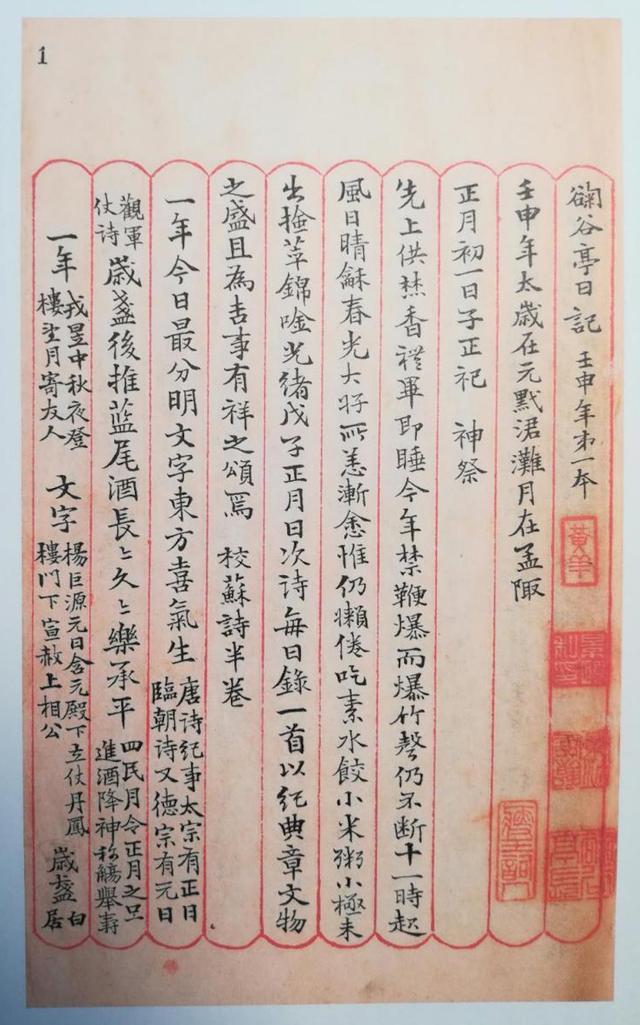 1
谷亭日記 壬申年弟一本
壬申年太歲在元默涒灘月在孟陬
正月初一日子正祀 神祭
先上供焚香禮畢即睡今年禁鞭爆而爆竹聲仍不斷十一時起
風日晴龢春光大好所恙漸愈惟仍懶倦吃素水餃小米粥小極未
出撿萃錦唫光緒戊子正月日次詩每日錄一首以紀典章文物
之盛且為吉事有祥之頌焉 校蘇詩半卷
一年今日最分明文字東方喜氣生 唐詩紀事太宗有正日臨朝詩又德宗有元日
觀軍仗詩 歲盞後推藍尾酒長〻久〻樂承平 四民月令正月之旦進酒降神称觴舉壽
一年 戎昱中秋夜登樓望月寄友人 文字 楊巨源元日含元殿下立仗丹鳳樓門下宣赦上相公 歲盞 白居